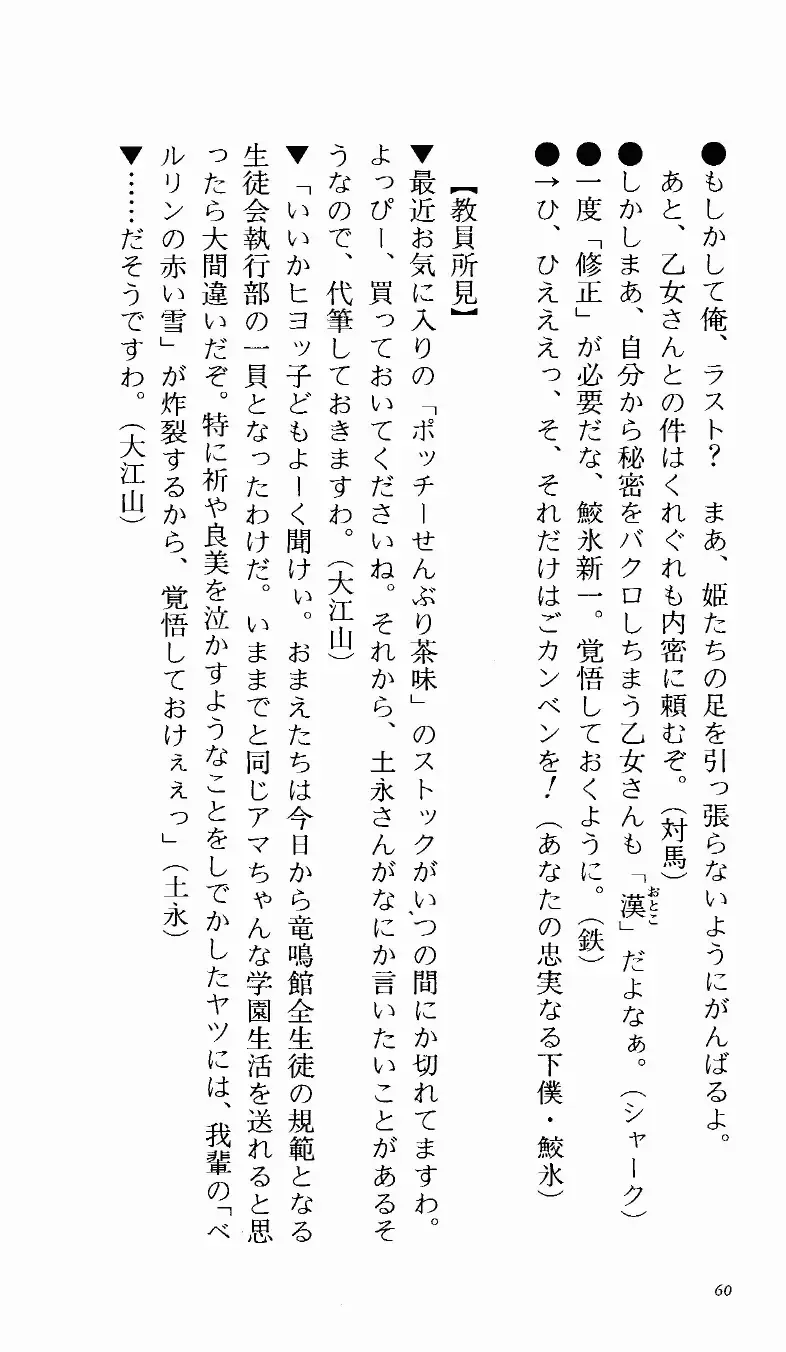 ●もしかして俺、ラスト？　まあ、姫たちの足を引っ張らないようにがんばるよ。
あと、乙女さんとの件はくれぐれも内密に頼むぞ。（対馬）
●しかしまあ、自分から秘密をバクロしちまう乙女さんも「漢」だよなぁ。（シャーク）
おとこ
●一度「修正」が必要だな、鮫氷新一。覚悟しておくように。（鉄）
●→ひ、ひえええっ、そ、それだけはごカンベンを！（あなたの忠実なる下僕・鮫氷）
【教員所見】
▼最近お気に入りの「ポッチーせんぶり茶味」のストックがいつの間にか切れてますわ。
よっぴー、買っておいてくださいね。それから、土永さんがなにか言いたいことがあるそ
うなので、代筆しておきますわ。（大江山）
▼「いいかヒヨッ子どもよーく聞けぃ。おまえたちは今日から竜鳴館全生徒の規範となる
生徒会執行部の一員となったわけだ。いままでと同じアマちゃんな学園生活を送れると思
ったら大間違いだぞ。特に祈や良美を泣かすようなことをしでかしたヤツには、我輩の「ベ
ルリンの赤い雪」が炸裂するから、覚悟しておけぇぇっ」（土永）
▼……だそうですわ。（大江山）
60